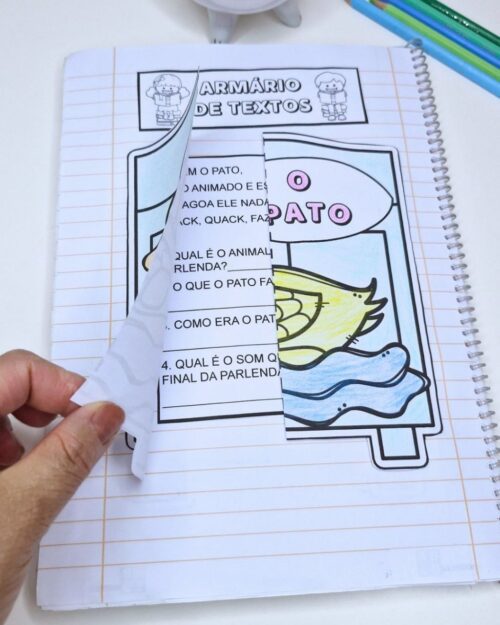 ARMÁRIO
DE TEXTOS
O
PATO
M O PATO,
O ANIMADO E ES
AGOA ELE NADA
ACK, QUACK, FAZ
QUAL É O ANIMAL
RLENDA?
O QUE O PATO FA
. COMO ERA O PAT
4. QUAL É O SOM Q
FINAL DA PARLENDA